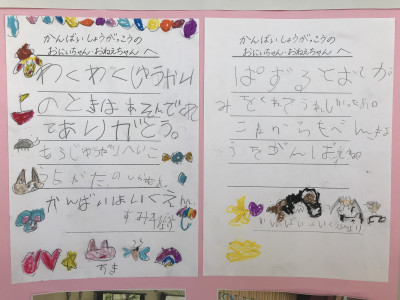 かんばいしょうがっこうの
おにいちゃん・おねえちゃん へ
わくわくじゅうがい
のときは あそんでくれ
てありがとう。
かんばいほいくえん
かんばいしょうがっこうの
おにいちゃん・おねえちゃん へ
ぱずるとおてが
みをくれてうれしかったよ。
これからもべんきょ
うをがんばってね。
かんばいほいくえんより